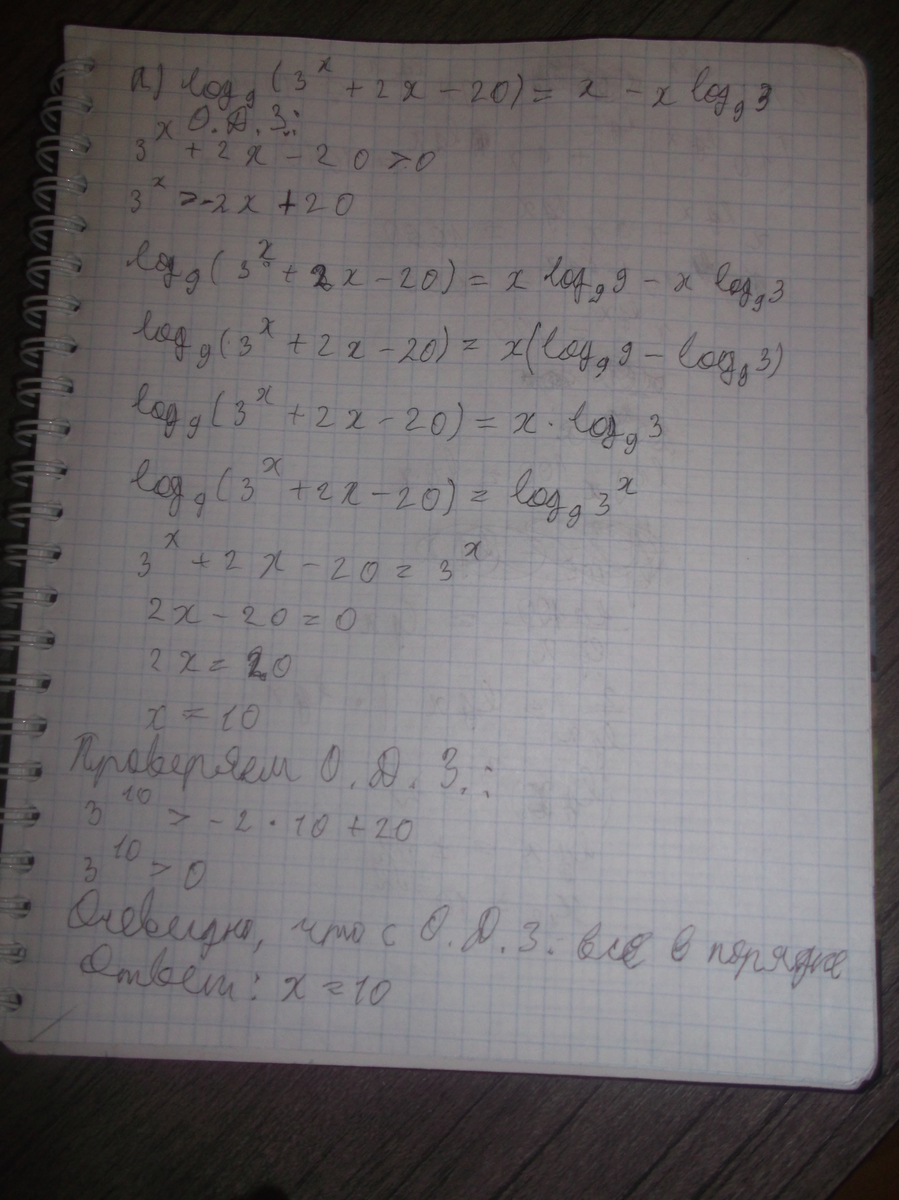 л) log₉(3ˣ + 2x - 20) = x - x log₉3
О.Д.З.:
3ˣ + 2x - 20 > 0
3ˣ > -2x + 20
log₉(3ˣ + 2x - 20) = x log₉9 - x log₉3
log₉(3ˣ + 2x - 20) = x(log₉9 - log₉3)
log₉(3ˣ + 2x - 20) = x · log₉3
log₉(3ˣ + 2x - 20) = log₉3ˣ
3ˣ + 2x - 20 = 3ˣ
2x - 20 = 0
2x = 20
x = 10
Проверяем О.Д.З.:
3¹⁰ > -2 · 10 + 20
3¹⁰ > 0
Очевидно, что с О.Д.З. все в порядке
Ответ: x = 10